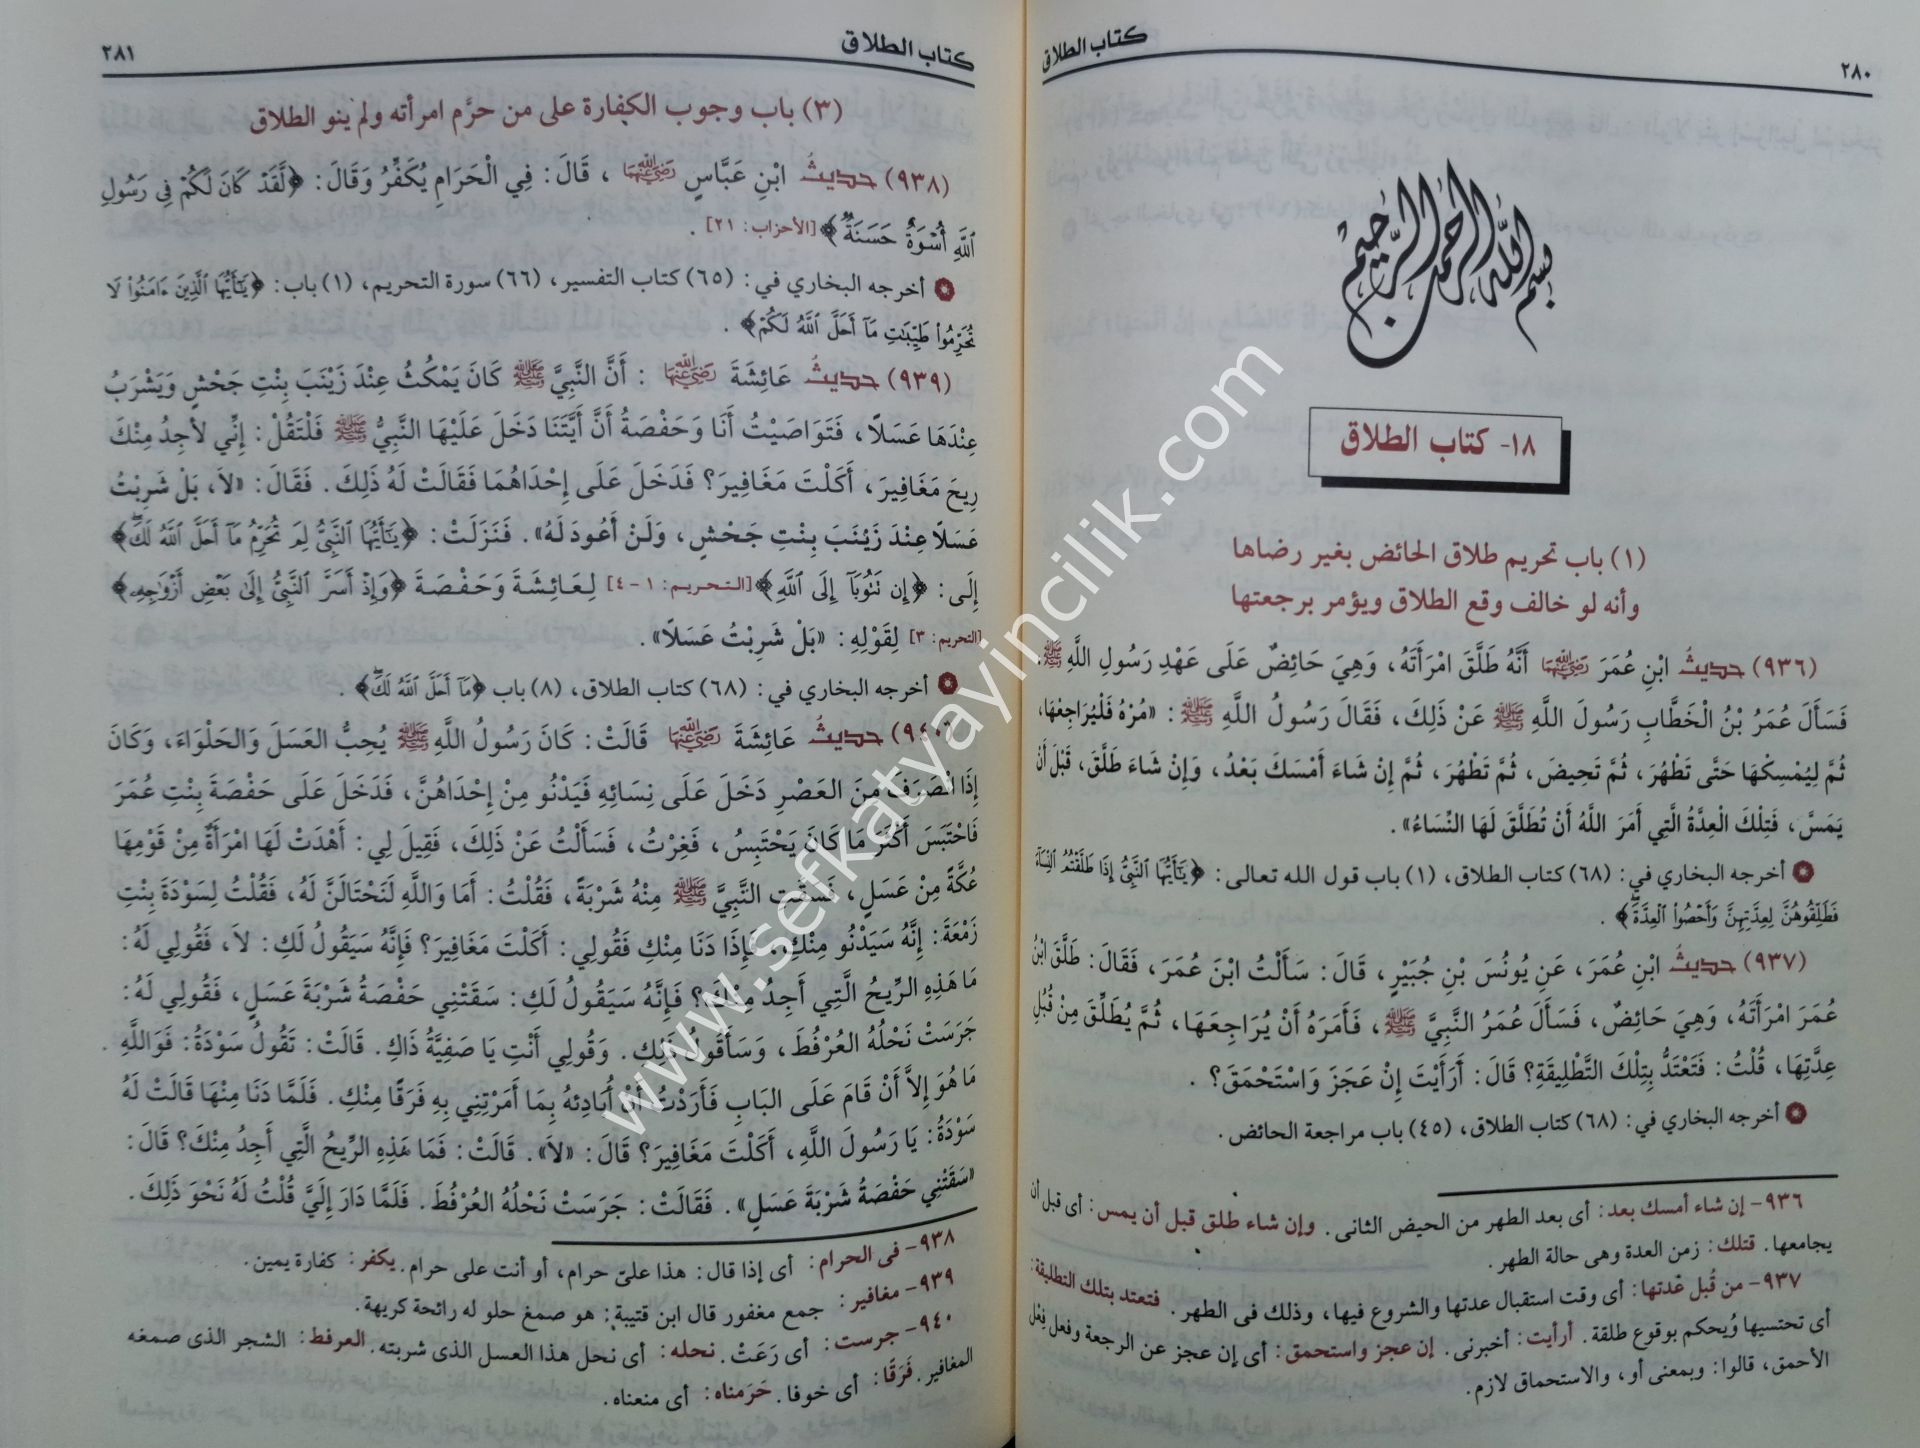 ٢٨٠
كتاب الطلاق
بسم الله الرحمن الرحيم
١٨- كتاب الطلاق
(١) باب تحريم طلاق الحائض بغير رضاها
وأنه لو خالف وقع الطلاق ويؤمر برجعتها
(٩٣٦) حديثُ ابْنِ عُمَرَ رَضِيَ اللَّهُ عَنْهُمَا أَنَّهُ طَلَّقَ امْرَأَتَهُ، وَهِيَ حَائِضٌ عَلَى عَهْدِ رَسُولِ اللَّهِ ﷺ.
فَسَأَلَ عُمَرُ بْنُ الْخَطَّابِ رَسُولَ اللَّهِ ﷺ عَنْ ذَلِكَ، فَقَالَ رَسُولُ اللَّهِ ﷺ: «مُرْهُ فَلْيُرَاجِعْهَا،
ثُمَّ لِيُمْسِكْهَا حَتَّى تَطْهُرَ، ثُمَّ تَحِيضَ، ثُمَّ تَطْهُرَ، ثُمَّ إِنْ شَاءَ أَمْسَكَ بَعْدُ، وَإِنْ شَاءَ طَلَّقَ، قَبْلَ أَنْ
يَمَسَّ، فَتِلْكَ الْعِدَّةُ الَّتِي أَمَرَ اللَّهُ أَنْ تُطَلَّقَ لَهَا النِّسَاءُ».
أخرجه البخاري في: (٦٨) كتاب الطلاق، (١) باب قول الله تعالى: ﴿يَٰٓأَيُّهَا ٱلنَّبِيُّ إِذَا طَلَّقْتُمُ ٱلنِّسَآءَ
فَطَلِّقُوهُنَّ لِعِدَّتِهِنَّ وَأَحْصُواْ ٱلْعِدَّةَ﴾.
(٩٣٧) حديثُ ابْنِ عُمَرَ، عَنْ يُونُسَ بْنِ جُبَيْرٍ، قَالَ: سَأَلْتُ ابْنَ عُمَرَ، فَقَالَ: طَلَّقَ ابْنُ
عُمَرَ امْرَأَتَهُ، وَهِيَ حَائِضٌ، فَسَأَلَ عُمَرُ النَّبِيَّ ﷺ، فَأَمَرَهُ أَنْ يُرَاجِعَهَا، ثُمَّ يُطَلِّقَ مِنْ قُبُلِ
عِدَّتِهَا، قُلْتُ: فَتَعْتَدُّ بِتِلْكَ التَّطْلِيقَةِ؟ قَالَ: أَرَأَيْتَ إِنْ عَجَزَ وَاسْتَحْمَقَ؟.
أخرجه البخاري في: (٦٨) كتاب الطلاق، (٤٥) باب مراجعة الحائض.
٩٣٦- إن شاء أمسك بعد: أى بعد الطهر من الحيض الثانى. وإن شاء طلق قبل أن يمس: أى قبل أن
يجامعها. فتلك: زمن العدة وهى حالة الطهر.
٩٣٧- من قُبل عدتها: أى وقت استقبال عدتها والشروع فيها، وذلك فى الطهر. فتعتد بتلك التطليقة:
أى تحتسبها ويُحكم بوقوع طلقة. أرأيت: أخبرنى. إن عجز واستحمق: أى إن عجز عن الرجعة وفعل فِعْل
الأحمق، قالوا: وبمعنى أو، والاستحماق لازم.
كتاب الطلاق
٢٨١
(٣) باب وجوب الكفارة على من حرَّم امرأته ولم ينو الطلاق
(٩٣٨) حديثُ ابْنِ عَبَّاسٍ رَضِيَ اللَّهُ عَنْهُمَا، قَالَ: فِي الْحَرَامِ يُكَفِّرُ وَقَالَ: ﴿لَّقَدْ كَانَ لَكُمْ فِى رَسُولِ
ٱللَّهِ أُسْوَةٌ حَسَنَةٌ﴾ [الأحزاب: ٢١].
أخرجه البخاري في: (٦٥) كتاب التفسير، (٦٦) سورة التحريم، (١) باب: ﴿يَٰٓأَيُّهَا ٱلَّذِينَ ءَامَنُواْ لَا
تُحَرِّمُواْ طَيِّبَٰتِ مَآ أَحَلَّ ٱللَّهُ لَكُمْ﴾.
(٩٣٩) حديثُ عَائِشَةَ رَضِيَ اللَّهُ عَنْهَا: أَنَّ النَّبِيَّ ﷺ كَانَ يَمْكُثُ عِنْدَ زَيْنَبَ بِنْتِ جَحْشٍ وَيَشْرَبُ
عِنْدَهَا عَسَلاً، فَتَوَاصَيْتُ أَنَا وَحَفْصَةُ أَنَّ أَيَّتَنَا دَخَلَ عَلَيْهَا النَّبِيُّ ﷺ فَلْتَقُلْ: إِنِّي لأَجِدُ مِنْكَ
رِيحَ مَغَافِيرَ، أَكَلْتَ مَغَافِيرَ؟ فَدَخَلَ عَلَى إِحْدَاهُمَا فَقَالَتْ لَهُ ذَلِكَ. فَقَالَ: «لاَ، بَلْ شَرِبْتُ
عَسَلاً عِنْدَ زَيْنَبَ بِنْتِ جَحْشٍ، وَلَنْ أَعُودَ لَهُ». فَنَزَلَتْ: ﴿يَٰٓأَيُّهَا ٱلنَّبِيُّ لِمَ تُحَرِّمُ مَآ أَحَلَّ ٱللَّهُ لَكَ﴾
إِلَى: ﴿إِن تَتُوبَآ إِلَى ٱللَّهِ﴾ [التحريم: ١-٤] لِعَائِشَةَ وَحَفْصَةَ ﴿وَإِذْ أَسَرَّ ٱلنَّبِيُّ إِلَىٰ بَعْضِ أَزْوَٰجِهِۦ﴾
[التحريم: ٣] لِقَوْلِهِ: «بَلْ شَرِبْتُ عَسَلاً».
أخرجه البخاري في: (٦٨) كتاب الطلاق، (٨) باب ﴿مَآ أَحَلَّ ٱللَّهُ لَكَ﴾.
(٩٤٠) حديثُ عَائِشَةَ رَضِيَ اللَّهُ عَنْهَا قَالَتْ: كَانَ رَسُولُ اللَّهِ ﷺ يُحِبُّ العَسَلَ وَالحَلْوَاءَ، وَكَانَ
إِذَا انْصَرَفَ مِنَ العَصْرِ دَخَلَ عَلَى نِسَائِهِ فَيَدْنُو مِنْ إِحْدَاهُنَّ، فَدَخَلَ عَلَى حَفْصَةَ بِنْتِ عُمَرَ
فَاحْتَبَسَ أَكْثَرَ مَا كَانَ يَحْتَبِسُ، فَغِرْتُ، فَسَأَلْتُ عَنْ ذَلِكَ، فَقِيلَ لِي: أَهْدَتْ لَهَا امْرَأَةٌ مِنْ قَوْمِهَا
عُكَّةً مِنْ عَسَلٍ، فَسَقَتِ النَّبِيَّ ﷺ مِنْهُ شَرْبَةً، فَقُلْتُ: أَمَا وَاللَّهِ لَنَحْتَالَنَّ لَهُ، فَقُلْتُ لِسَوْدَةَ بِنْتِ
زَمْعَةَ: إِنَّهُ سَيَدْنُو مِنْكِ، فَإِذَا دَنَا مِنْكِ فَقُولِي: أَكَلْتَ مَغَافِيرَ؟ فَإِنَّهُ سَيَقُولُ لَكِ: لاَ، فَقُولِي لَهُ:
مَا هَذِهِ الرِّيحُ الَّتِي أَجِدُ مِنْكَ؟ فَإِنَّهُ سَيَقُولُ لَكِ: سَقَتْنِي حَفْصَةُ شَرْبَةَ عَسَلٍ، فَقُولِي لَهُ:
جَرَسَتْ نَحْلُهُ العُرْفُطَ، وَسَأَقُولُ ذَلِكَ. وَقُولِي أَنْتِ يَا صَفِيَّةُ ذَاكِ. قَالَتْ: تَقُولُ سَوْدَةُ: فَوَاللَّهِ
مَا هُوَ إِلاَّ أَنْ قَامَ عَلَى البَابِ فَأَرَدْتُ أَنْ أُبَادِئَهُ بِمَا أَمَرْتِنِي بِهِ فَرَقًا مِنْكِ. فَلَمَّا دَنَا مِنْهَا قَالَتْ لَهُ
سَوْدَةُ: يَا رَسُولَ اللَّهِ، أَكَلْتَ مَغَافِيرَ؟ قَالَ: «لاَ». قَالَتْ: فَمَا هَذِهِ الرِّيحُ الَّتِي أَجِدُ مِنْكَ؟ قَالَ:
«سَقَتْنِي حَفْصَةُ شَرْبَةَ عَسَلٍ». فَقَالَتْ: جَرَسَتْ نَحْلُهُ العُرْفُطَ. فَلَمَّا دَارَ إِلَيَّ قُلْتُ لَهُ نَحْوَ ذَلِكَ.
٩٣٨- فى الحرام: أى إذا قال: هذا علىّ حرام، أو أنت على حرام. يكفر: كفارة يمين.
٩٣٩- مغافير: جمع مغفور قال ابن قتيبة: هو صمغ حلو له رائحة كريهة.
٩٤٠- جرست: أى رَعَتْ. نحله: أى نحل هذا العسل الذى شربته. العرفط: الشجر الذى صمغه
المغافير. فَرَقًا: أى خوفا. حَرَمناه: أى منعناه.
www.sefkatyayincilik.com